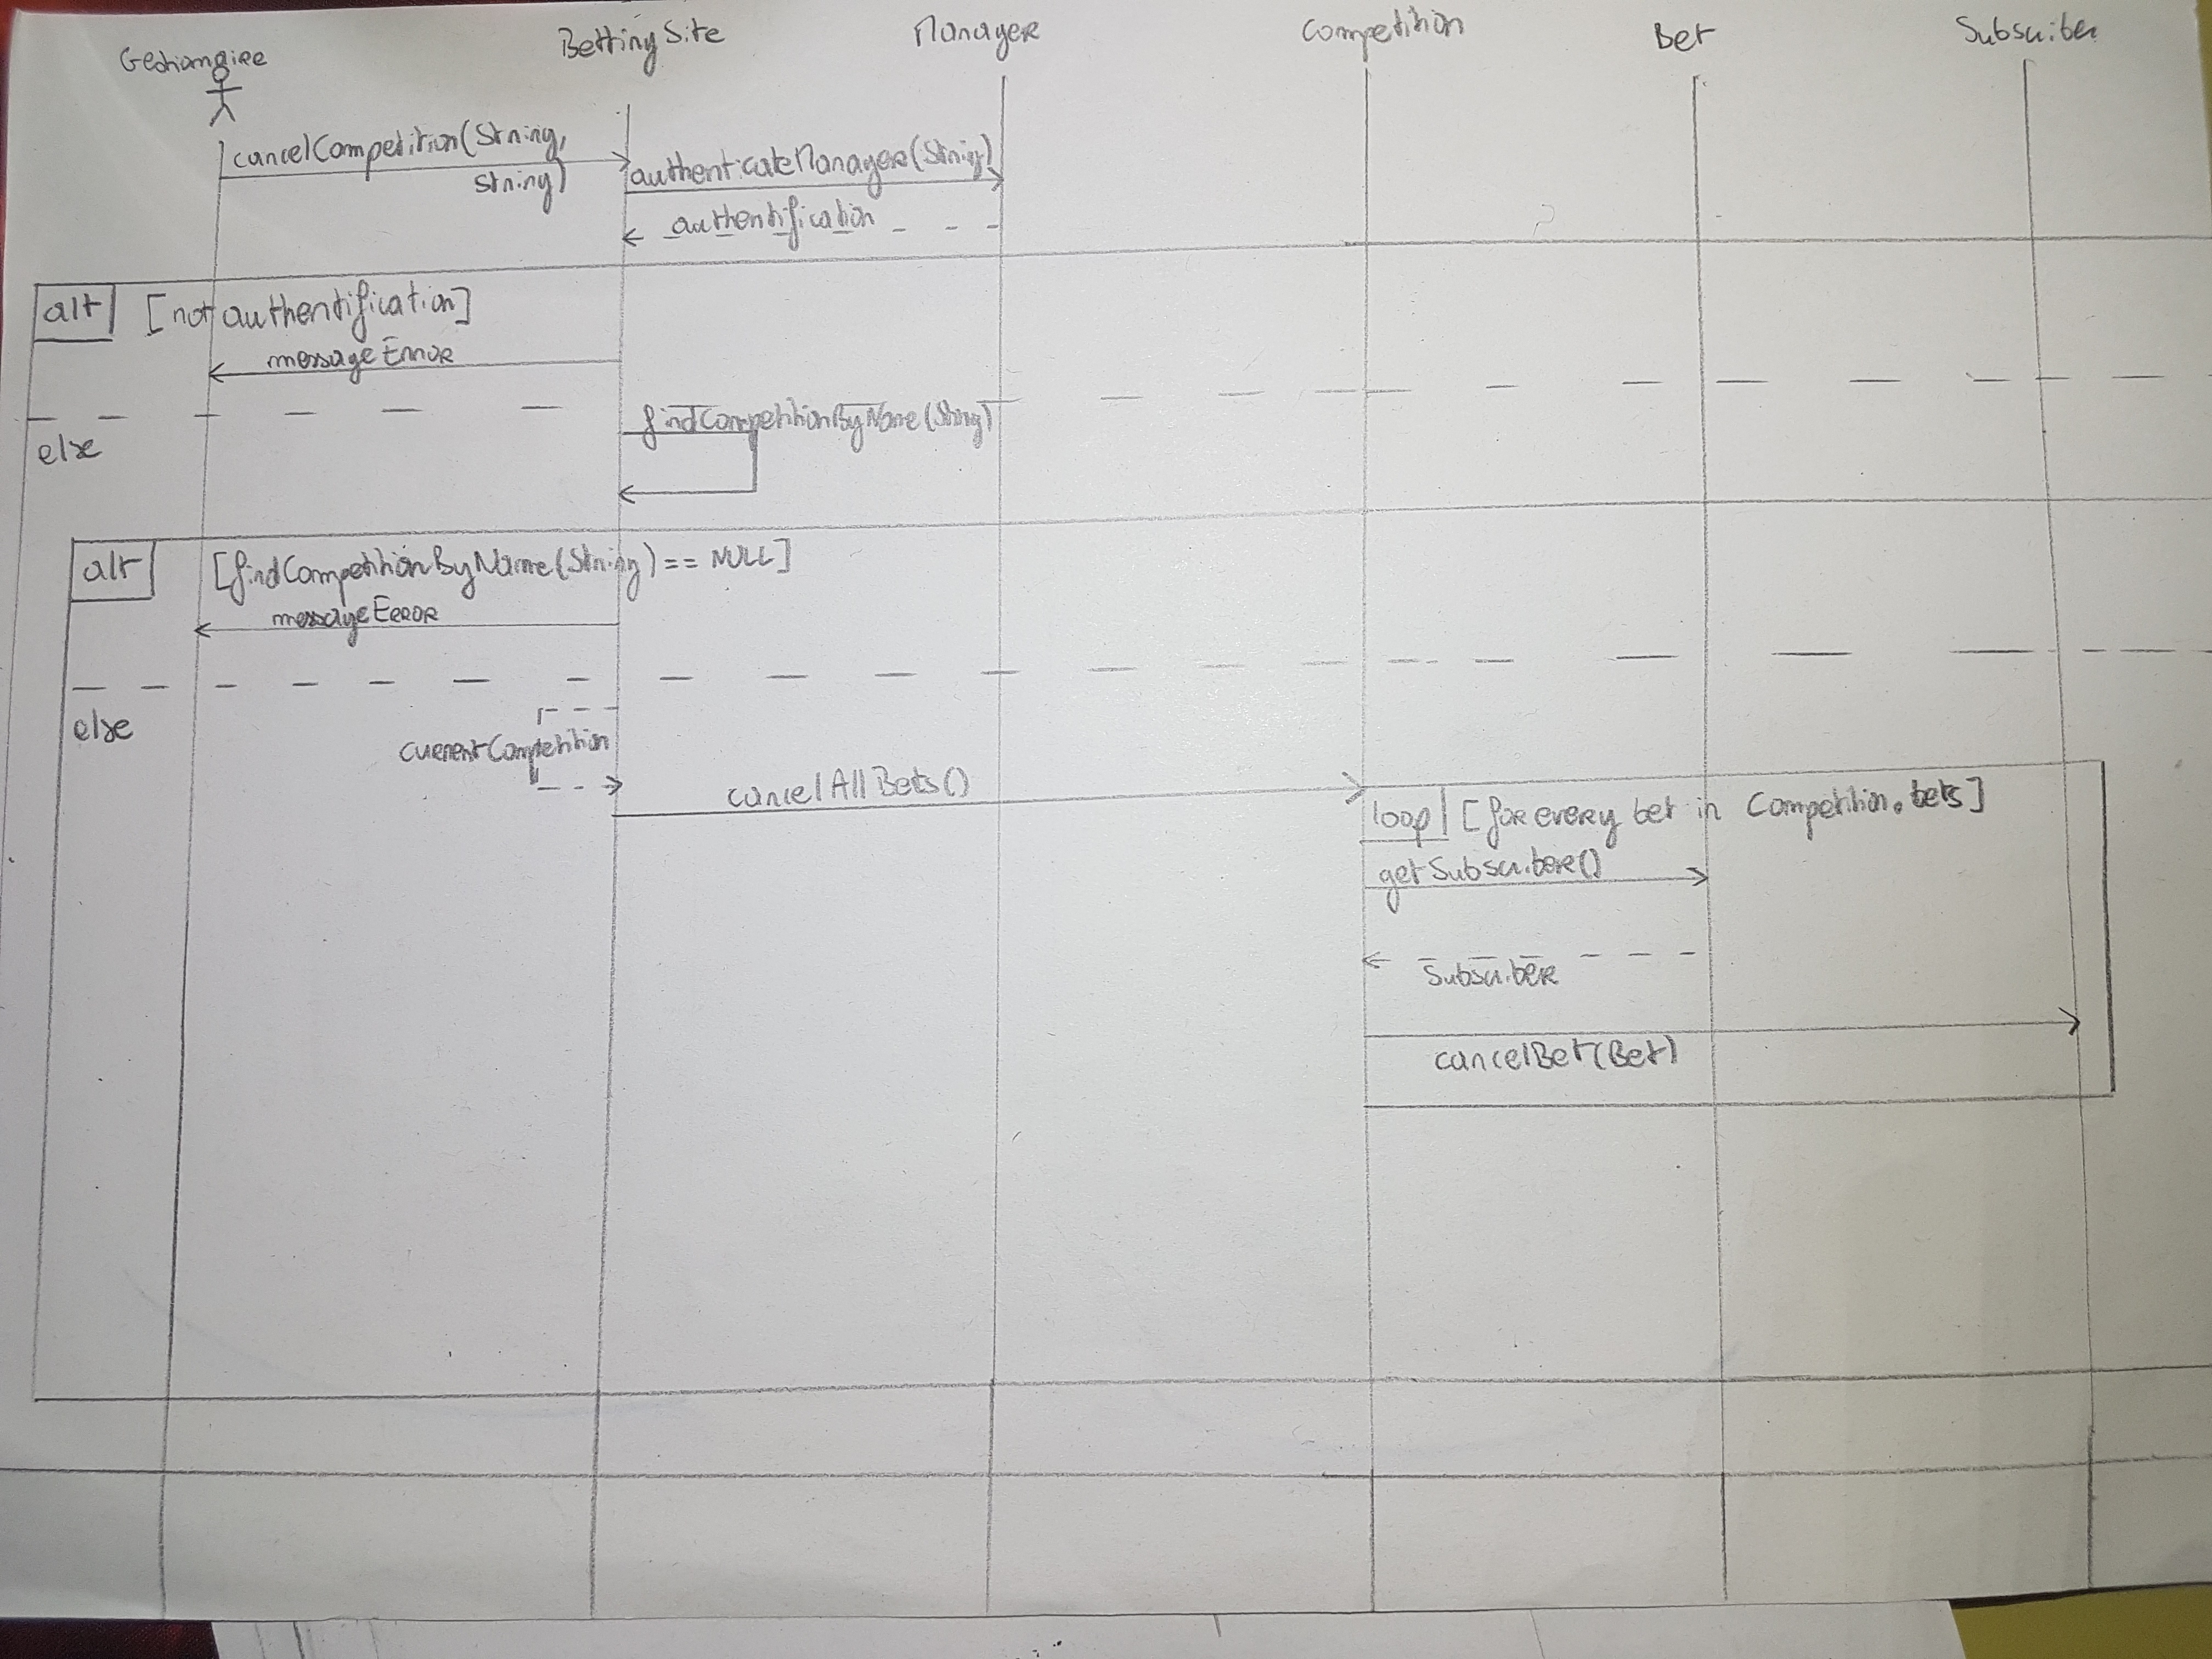 Gestionnaire
BettingSite
Manager
Competition
Bet
Subscriber
cancelCompetition(String,
String)
authenticateManager(String)
authentification
alt [not authentification]
messageError
else
findCompetitionByName(String)
alt [findCompetitionByName(String) == NULL]
messageError
else
currentCompetition
cancelAllBets()
loop [for every bet in Competition.bets]
getSubscriber()
Subscriber
cancelBet(Bet)